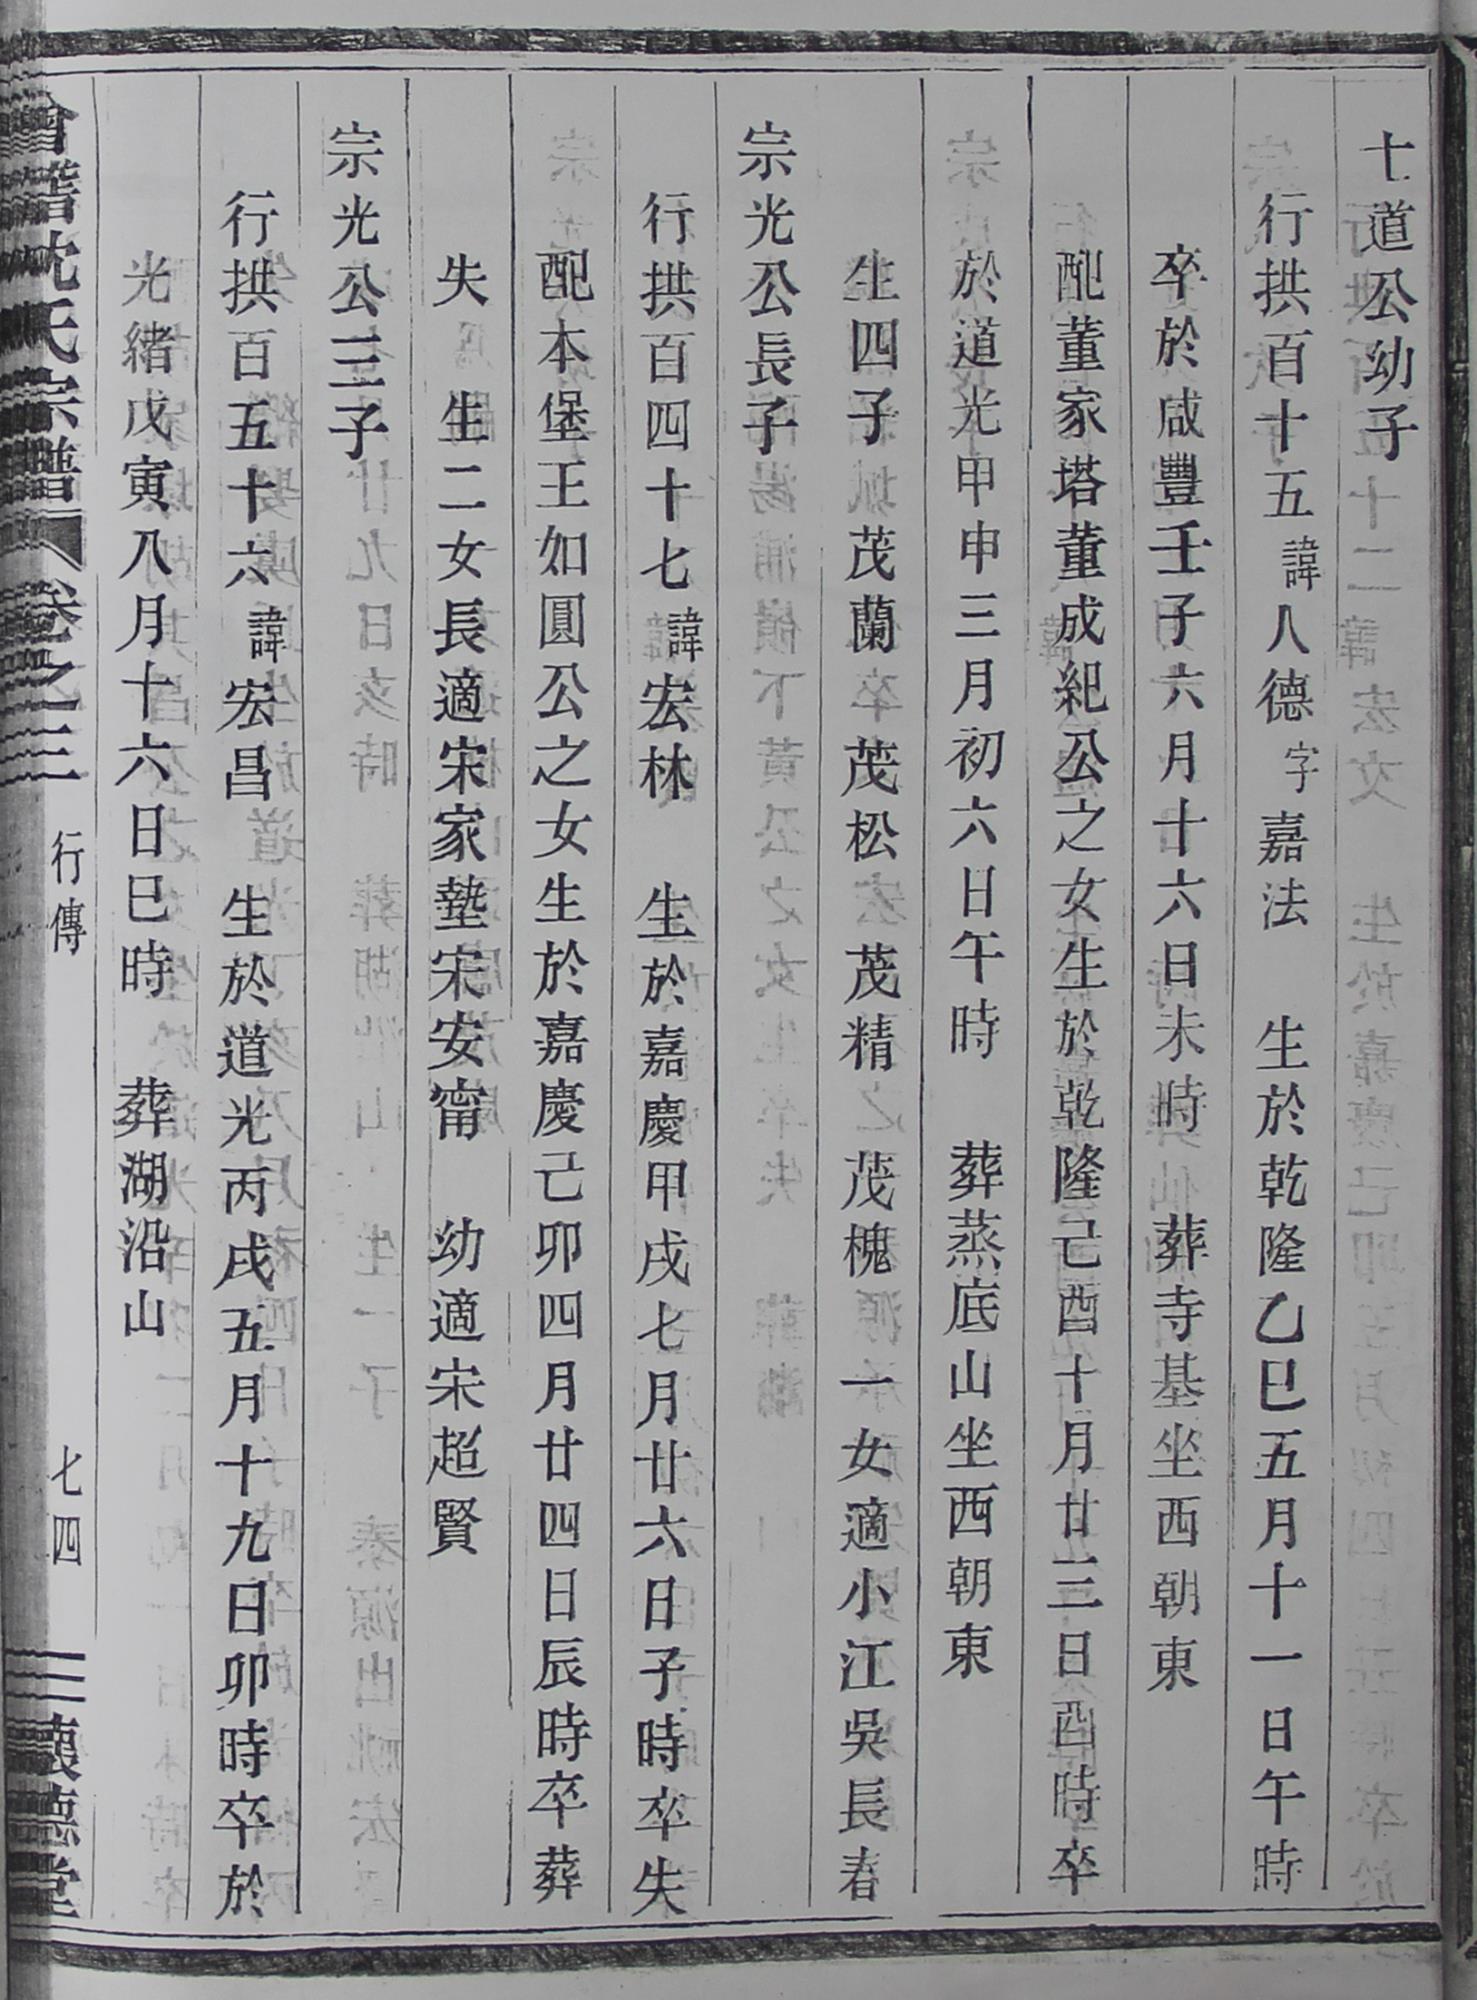 士道公幼子
行拱百十五諱人德字嘉法　生於乾隆乙巳五月十一日午時
卒於咸豐壬子六月十六日未時　葬寺基坐西朝東
配董家塔董成紀公之女生於乾隆己酉十月廿三日酉時卒
於道光甲申三月初六日午時　葬蒸底山坐西朝東
生四子　茂蘭　茂松　茂精　茂槐　一女適小江吳長春
宗光公長子
行拱百四十七諱宏林　生於嘉慶甲戌七月廿六日子時卒失
配本堡王如圓公之女生於嘉慶己卯四月廿四日辰時卒葬
失　生二女長適宋家墊宋安甯　幼適宋超賢
宗光公三子
行拱百五十六諱宏昌　生於道光丙戌五月十九日卯時卒於
光緒戊寅八月十六日巳時　葬湖沿山
會稽沈氏宗譜　卷之三　行傳　七四　三懷德堂